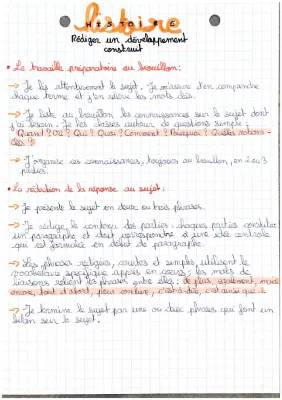 histoire
HISTOIRE
Rédiger un développement
construit
• Le travaille préparatoire au brouillon:
→ Je lis attentivement le sujet. Je m'assure d'en comprendre
chaque terme et j'en relève les mots clés.
→ Je liste au brouillon les connaissances sur le sujet dont
j'ai besoin. Je les classes autour de questions simple:
Quand? Où? Qui? Quoi? Comment? Pourquoi? Quelles notions-
clés?
→ J'organise ces connaissances, toujours au brouillon, en 2 ou 3
parties.
• La rédaction de la réponse au sujet:
→ Je présente le sujet en deux ou trois phrases.
→ Je rédige le contenu des parties: chaques parties constitue
un paragraphe et doit correspondre à une idée centrale
qui est formulée en début de paragraphe.
→ Les phrases rédigées, courtes et simples utilisent le
vocabulaire spécifique appris en cours; les mots de
liaisons relient les phrases entre elles: de plus, également, mais
encore, tout d'abord, pour conclure, c'est-à-dire, c'est ainsi que
→ Je termine le sujet par une ou deux phrases qui font un
bilan sur le sujet.